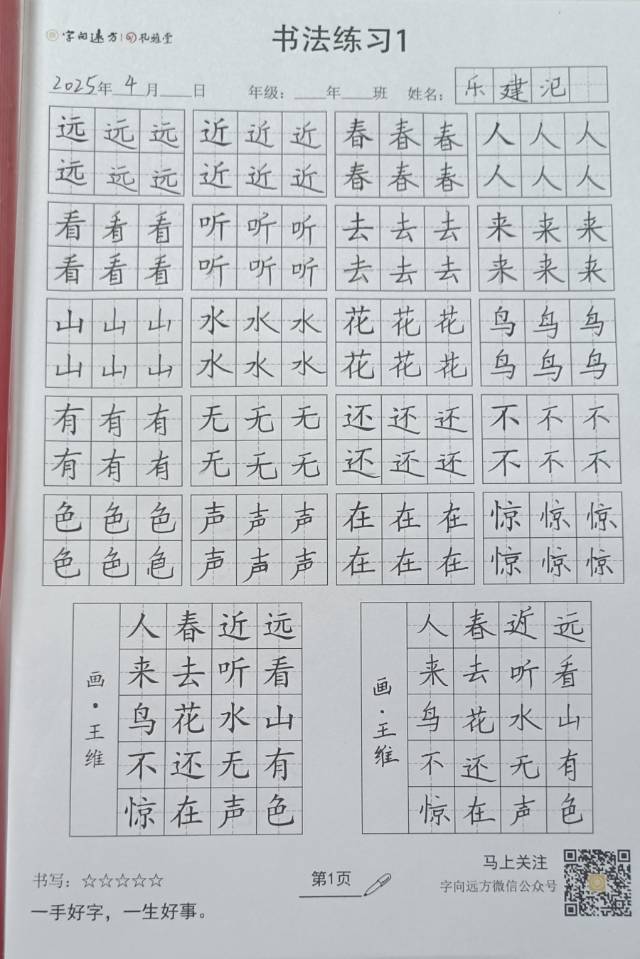 字向远方 礼雅堂
书法练习1
2025年 4 月 日 年级： 年 班 姓名： 乐建汜
远远远 近近近 春春春 人人人
远远远 近近近 春春春 人人人
看看看 听听听 去去去 来来来
看看看 听听听 去去去 来来来
山山山 水水水 花花花 鸟鸟鸟
山山山 水水水 花花花 鸟鸟鸟
有有有 无无无 还还还 不不不
有有有 无无无 还还还 不不不
色色色 声声声 在在在 惊惊惊
色色色 声声声 在在在 惊惊惊
画·王维
远看山有色
近听水无声
春去花还在
人来鸟不惊
画·王维
远看山有色
近听水无声
春去花还在
人来鸟不惊
书写：☆☆☆☆☆
一手好字，一生好事。
第1页
马上关注
字向远方微信公众号